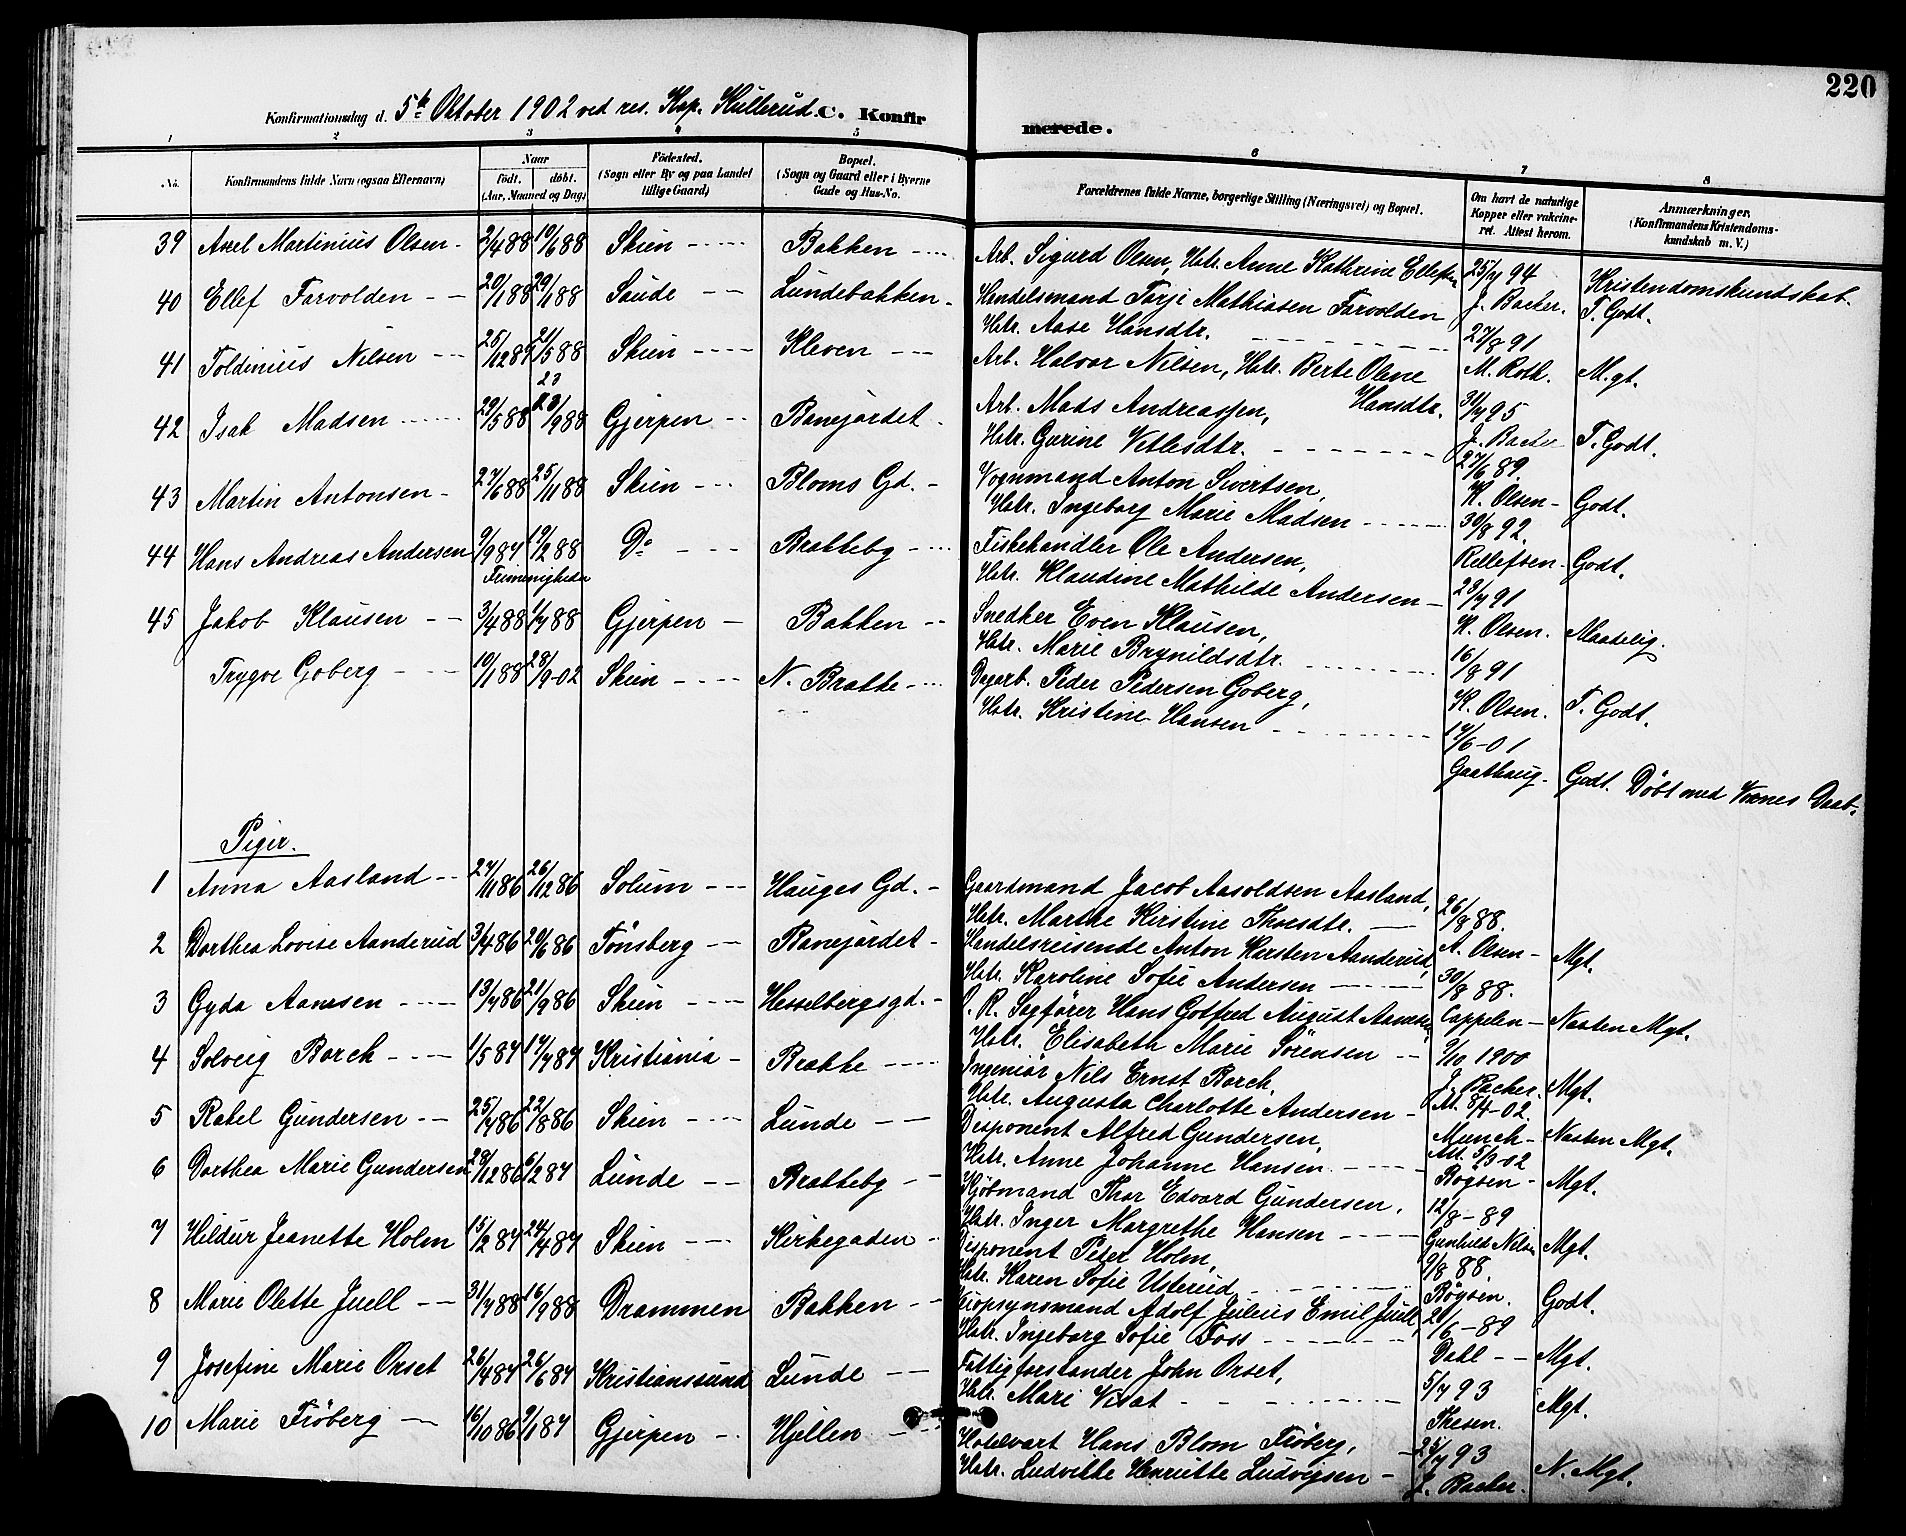 220
Konfirmationsdag d. 5te Oktober 1902 ved res. Kap. Hullerud. C. Konfirmerede.
1 2 3 4 5 6 7 8
No. Konfirmandens fulde Navn (ogsaa Efternavn) Naar födt. döbt. (Aar, Maaned og Dag) Födested. (Sogn eller By og paa Landet tillige Gaard) Bopæl. (Sogn og Gaard eller i Byerne Gade og Hus-No. Forældrenes fulde Navne, borgerlige Stilling (Næringsvei) og Bopæl. Om havt de naturlige Kopper eller vakcineret. Attest herom. Anmærkninger. (Konfirmandens Kristendomskundskab m. V.)
39 Axel Martinius Olsen 2/4 88 10/6 88 Skien Bakken Arb. Sigurd Olsen, Hstr. Anne Kathrine Ellefsen 25/7 94 J. Backer. Kristendomskundskab. T. Godt.
40 Ellef Farvolden 20/1 88 29/1 88 Saude Lundebakken Handelsmand Tarje Mathiasen Farvolden
Hstr. Aase Hansdtr. 27/8 91 M. Roth. M.gt.
41 Toldinius Nilsen 25/12 87 21/5 88 Skien Kleven Arb. Halvor Nilsen, Hstr. Berte Olene Hansdtr. 31/7 95 J. Backer T. Godt.
42 Isak Madsen 29/5 88 23/9 88 Gjerpen Banejordet Arb. Mads Andreassen,
Hstr. Gurine Vetlesdtr. 27/6 89. K. Olsen Godt.
43 Martin Antonsen 27/6 88 25/11 88 Skien Bloms Gd. Vognmand Anton Sivertsen,
Hstr. Ingeborg Marie Madsen 30/8 92. Rellefsen Godt.
44 Hans Andreas Andersen 9/9 87 19/2 88 Do Brattebg Fiskehandler Ole Andersen,
Frimenigheden
Hstr. Klaudine Mathilde Andersen 23/7 91 K. Olsen. Maadelig.
45 Jakob Klausen 3/4 88 1/7 88 Gjerpen Bakken Snedker Even Klausen,
Hstr. Marie Brynildsdtr. 16/8 91 K. Olsen. T. Godt.
Trygve Goberg 10/1 88 28/9-02 Skien N. Bratte Dagarb. Peder Pedersen Goberg,
Hstr. Kristine Hansen 17/6-01 Gaathaug. Godt. Döbt med Voxnes Daab.
Piger.
1 Anna Aasland 27/11 86 26/12 86 Solum Hauges Gd. Gaardmand Jacob Aasoldsen Aasland,
Hstr. Marthe Kirstine Thoresdtr. 26/8 88. A. Olsen Mgt.
2 Dorthea Lovise Aanderud 3/4 86 20/6 86 Tönsberg Banejordet Handelsreisende Anton Karsten Aanderud,
Hstr. Karoline Sofie Andersen 30/8 88. Cappelen Næsten Mgt.
3 Gyda Aamesen 13/7 86 21/9 86 Skien Hesselbergsgd. O. R. Sagförer Hans Gotfred August Aamesen
Hstr. Elisabeth Marie Sörensen 9/10 1900 J. Backer. Mgt.
4 Solveig Borch 1/5 87 17/7 87 Kristiania Bratte Ingeniör Nils Ernst Borch,
Hstr. Augusta Charlotte Andersen At. 8/4-02. Munch Næsten Mgt.
5 Rakel Gundersen 25/7 86 22/8 86 Skien Lunde Disponent Alfred Gundersen,
Hstr. Anne Johanne Hansen Att. 5/3-02 Bögsen Mgt.
6 Dorthea Marie Gundersen 28/12 86 6/2 87 Lunde Brattebg Kjöbmand Thor Edvard Gundersen,
Hstr. Inger Margrethe Hansen 12/8-89 Gunhild Nilsen Mgt.
7 Hildur Jeanette Holm 15/2 87 24/4 87 Skien Kirkegaden Disponent Peter Holm,
Hstr. Karen Sofie Usterud 9/8 88. Bögsen. Godt.
8 Marie Olette Juell 31/7 88 16/9 88 Drammen Bakken Veiopsynsmand Adolf Julius Emil Juell,
Hstr. Ingeborg Sofie Foss 21/6-89 Dahl Mgt.
9 Josefine Marie Orset 26/4 87 26/6 87 Kristianssund Lunde Fattigforstander John Orset,
Hstr. Mari Visat 5/7 93 Thesen. Mgt.
10 Marie Fröberg 16/10 86 9/1 87 Gjerpen Hjellen Hotelvært Hans Blom Fröberg,
Hstr. Ludvikke Henriette Ludvigsen 25/7 93 J. Backer. N. Mgt.